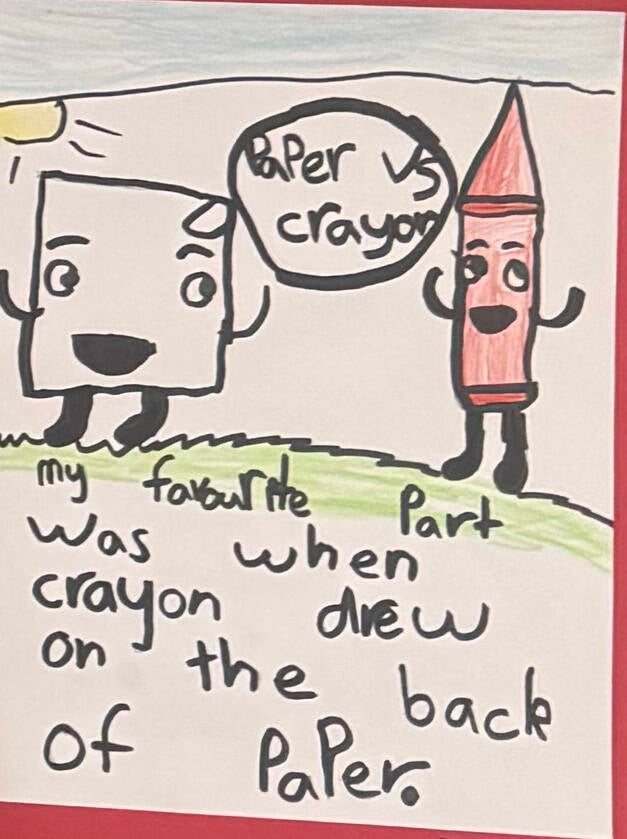 PaPer vs
crayon
my favourite Part
was when
crayon drew
on the back
of PaPer.